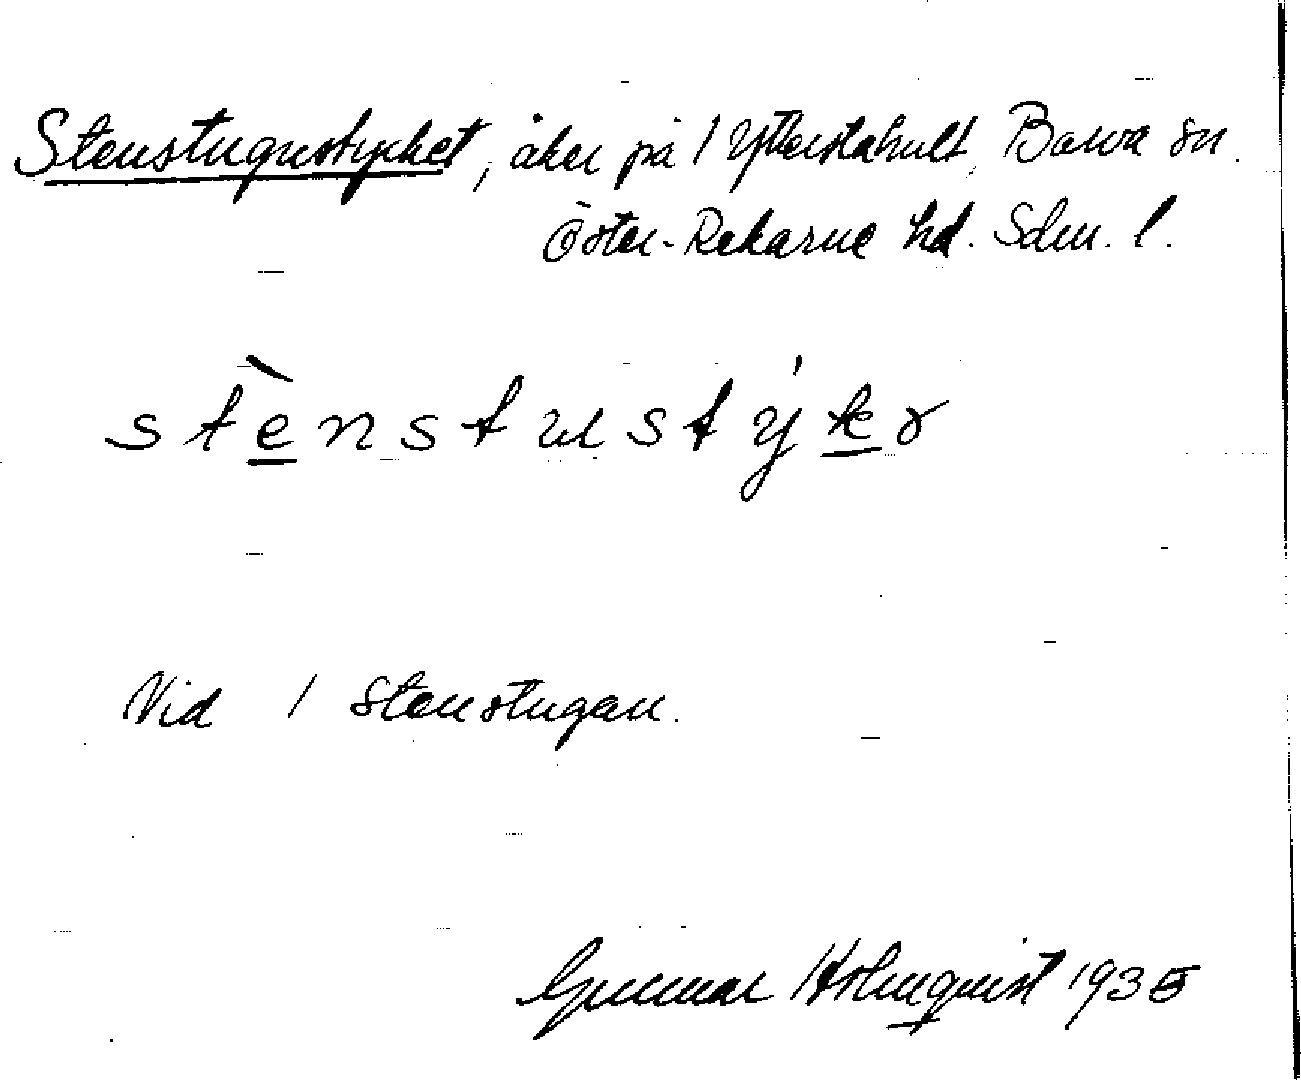 Stenstugustycket, åker på / Ytterstahult, Barva sn.
Öster-Rekarne hd. Sdm. l.
stènstustýkə
Vid / Stenstugan.
Gunnar Holmquist 1935